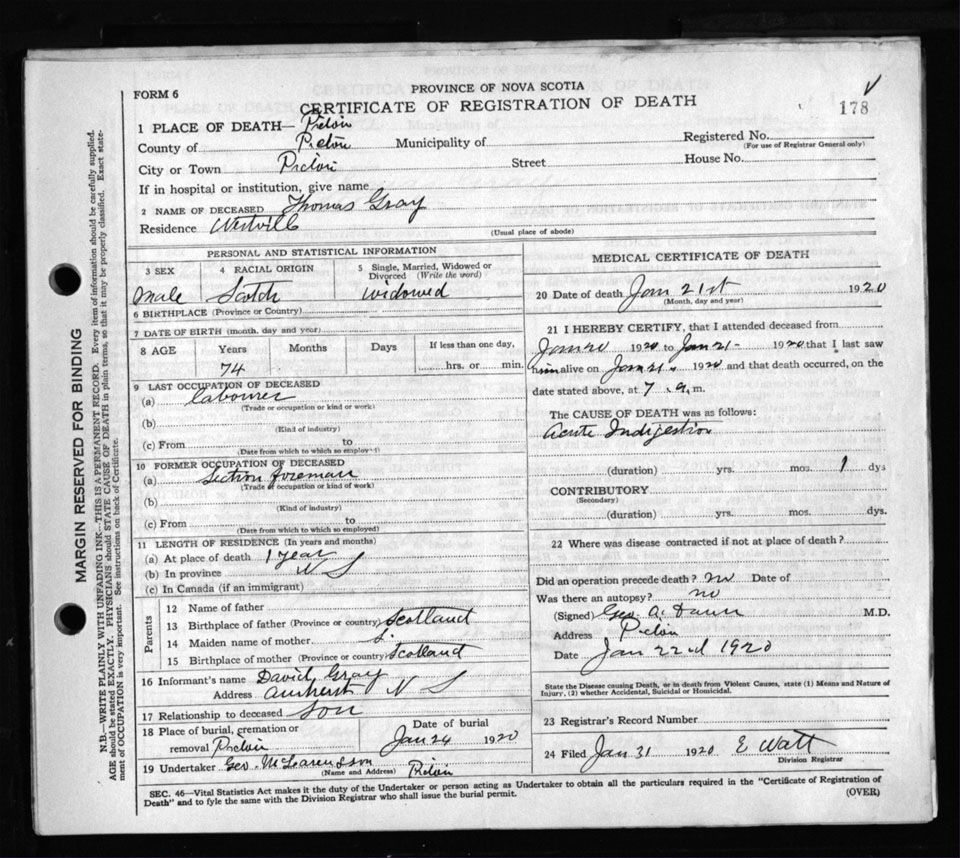 FORM 6
PROVINCE OF NOVA SCOTIA
CERTIFICATE OF REGISTRATION OF DEATH
178
1 PLACE OF DEATH— Pictou
County of Pictou Municipality of
Registered No.
(For use of Registrar General only)
City or Town Pictou Street House No.
If in hospital or institution, give name
2 NAME OF DECEASED Thomas Gray
Residence Westville
(Usual place of abode)
PERSONAL AND STATISTICAL INFORMATION
3 SEX
Male
4 RACIAL ORIGIN
Scotch
5 Single, Married, Widowed or Divorced (Write the word)
widowed
6 BIRTHPLACE (Province or Country)
7 DATE OF BIRTH (month, day and year)
8 AGE Years Months Days If less than one day,
74 hrs. or min.
9 LAST OCCUPATION OF DECEASED
(a) Labourer
(Trade or occupation or kind of work)
(b)
(Kind of industry)
(c) From to
(Date from which to which so employed)
10 FORMER OCCUPATION OF DECEASED
(a) Section foreman
(Trade or occupation or kind of work)
(b)
(Kind of industry)
(c) From to
(Date from which to which so employed)
11 LENGTH OF RESIDENCE (In years and months)
(a) At place of death 1 year
(b) In province N S
(c) In Canada (if an immigrant)
Parents
12 Name of father
13 Birthplace of father (Province or country) Scotland
14 Maiden name of mother
15 Birthplace of mother (Province or country) Scotland
16 Informant's name David Gray
Address Amherst N S
17 Relationship to deceased Son
18 Place of burial, cremation or
removal Pictou
Date of burial
Jan 24 1920
19 Undertaker Geo. McLaren & son Pictou
(Name and Address)
MEDICAL CERTIFICATE OF DEATH
20 Date of death Jan 21st 1920
(Month, day and year)
21 I HEREBY CERTIFY, that I attended deceased from
Jan 20 1920 to Jan 21- 1920 that I last saw
him alive on Jan 21- 1920 and that death occurred, on the
date stated above, at 7 a.m.
The CAUSE OF DEATH was as follows:
Acute Indigestion
(duration) yrs. mos. 1 dys
CONTRIBUTORY
(Secondary)
(duration) yrs. mos. dys.
22 Where was disease contracted if not at place of death?
Did an operation precede death? no Date of
Was there an autopsy? no
(Signed) Geo. A. M.D.
Address Pictou
Date Jan 22nd 1920
State the Disease causing Death, or in death from Violent Causes, state (1) Means and Nature of
Injury, (2) whether Accidental, Suicidal or Homicidal.
23 Registrar's Record Number
24 Filed Jan 31 1920 E Watt
Division Registrar
SEC. 46—Vital Statistics Act makes it the duty of the Undertaker or person acting as Undertaker to obtain all the particulars required in the "Certificate of Registration of
Death" and to fyle the same with the Division Registrar who shall issue the burial permit.
(OVER)
MARGIN RESERVED FOR BINDING
N.B.—WRITE PLAINLY WITH UNFADING INK—THIS IS A PERMANENT RECORD. Every item of information should be carefully supplied.
AGE should be stated EXACTLY. PHYSICIANS should STATE CAUSE OF DEATH in plain terms, so that it may be properly classified. Exact statement of OCCUPATION is very important. See instructions on back of Certificate.